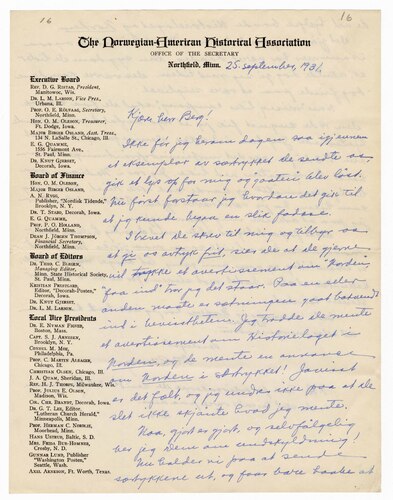 16
16
The Norwegian-American Historical Association
OFFICE OF THE SECRETARY
Northfield, Minn. 25. september, 1931.
Executive Board
REV. D. G. RISTAD, President,
Manitowoc, Wis.
DR. L. M. LARSON, Vice Pres.,
Urbana, Ill.
PROF. O. E. RÖLVAAG, Secretary,
Northfield, Minn.
HON. O. M. OLESON, Treasurer,
Ft. Dodge, Iowa.
MAJOR BIRGER OSLAND, Asst. Treas.,
134 N. LaSalle St., Chicago, Ill.
E. G. QUAMME,
1556 Fairmont Ave.,
St. Paul, Minn.
DR. KNUT GJERSET,
Decorah, Iowa.
Board of Finance
HON. O. M. OLESON,
MAJOR BIRGER OSLAND,
A. N. RYGG,
Publisher, "Nordisk Tidende,"
Brooklyn, N. Y.
DR. T. STABO, Decorah, Iowa.
E. G. QUAMME,
St. Paul, Minn.
PROF. P. O. HOLLAND,
Northfield, Minn.
DEAN J. JÖRGEN THOMPSON,
Financial Secretary,
Northfield, Minn.
Board of Editors
DR. THEO. C. BLEGEN,
Managing Editor,
Minn. State Historical Society,
St. Paul, Minn.
KRISTIAN PRESTGARD,
Editor, "Decorah-Posten,"
Decorah, Iowa.
DR. KNUT GJERSET,
DR. L. M. LARSON.
Local Vice Presidents
DR. E. NYMAN FISHER,
Boston, Mass.
CAPT. S. J. ARNESEN,
Brooklyn, N. Y.
CONSUL M. MOE,
Philadelphia, Pa.
PROF. C. MARTIN ALSAGER,
Chicago, Ill.
CHRISTIAN OLSEN, Chicago, Ill.
J. A. QUAM, Sheridan, Ill.
REV. H. J. THORPE, Milwaukee, Wis.
PROF. JULIUS E. OLSON,
Madison, Wis.
COL. CHR. BRANDT, Decorah, Iowa.
DR. G. T. LEE, Editor,
"Lutheran Church Herald,"
Minneapolis, Minn.
PROF. HERMAN C. NORDLIE,
Moorhead, Minn.
HANS USTRUD, Baltic, S. D.
MRS. FREDA BUE-HOMNES,
Crosby, N. D.
GUNNAR LUND, Publisher
"Washington Posten,"
Seattle, Wash.
AXEL ARNESON, Ft. Worth, Texas.
Kjære herr Berg!
Ikke før jeg her om dagen saa igjennem
et eksemplar av særtrykket de sendte os,
gik et lys op for mig og gaaten blev løst.
Nu først forstaar jeg hvordan det gik til
at jeg kunde begaa en slik fadæse.
I brevet de skrev til mig og tilbyr os
at gi os avtryk frit, sies de at de gjerne
vil ha et avertissement om "Norden"
"faa ind" før jeg det staar. Paa en eller
anden maate er sætningen gaat bakvendt
ind i bevisstheten. Jeg trodde de mente
et avertissement om Historielaget i
Norden, og de mente en annonse
om Norden i særtrykket! Javisst
er det falt, og jeg undres ikke paa at de
slet ikke skjønte hvad jeg mente.
Naa, gjort er gjort, og selvfølgelig
ber jeg dem om undskyldning!
Nu holder vi paa at sende
særtrykkene ut, og faar bare haabe at